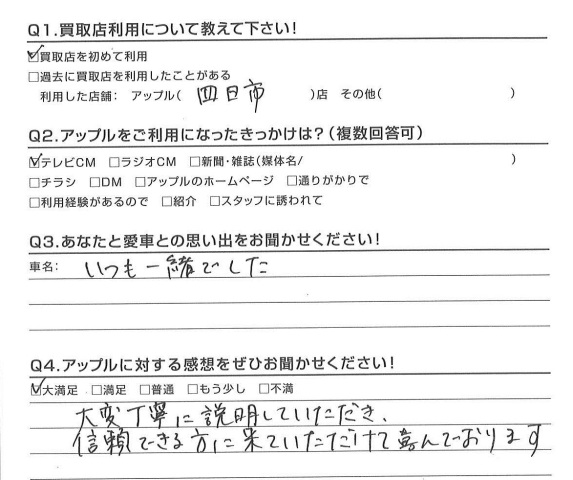 Q1.買取店利用について教えて下さい!
☑買取店を初めて利用
□過去に買取店を利用したことがある
利用した店舗: アップル( 四日市 )店 その他( )
Q2.アップルをご利用になったきっかけは?(複数回答可)
☑テレビCM □ラジオCM □新聞・雑誌(媒体名/ )
□チラシ □DM □アップルのホームページ □通りがかりで
□利用経験があるので □紹介 □スタッフに誘われて
Q3.あなたと愛車との思い出をお聞かせください!
車名: いつも一緒でした
Q4.アップルに対する感想をぜひお聞かせください!
☑大満足 □満足 □普通 □もう少し □不満
大変丁寧に説明していただき、
信頼できる方に来ていただけて喜んでおります